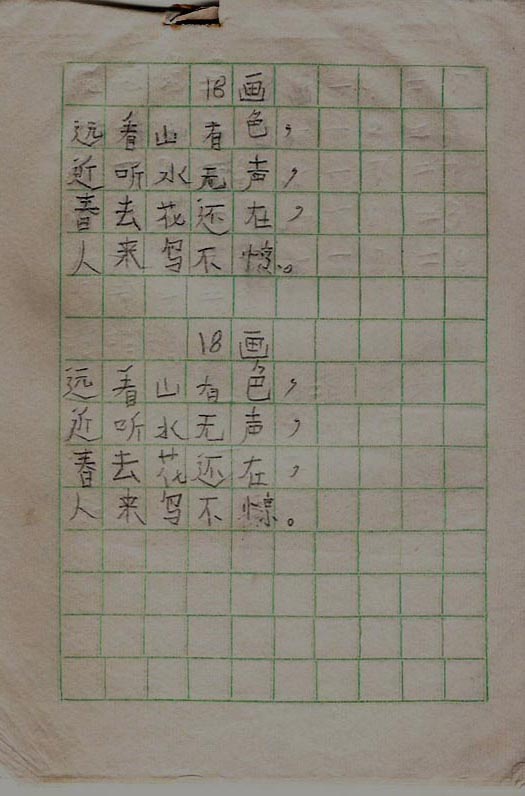 18画
远看山有色，
近听水无声，
春去花还在，
人来鸟不惊。
18画
远看山有色，
近听水无声，
春去花还在，
人来鸟不惊。